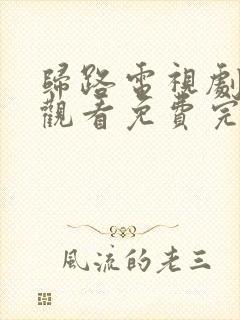 歸路電視劇
觀看免費完
風流的老三